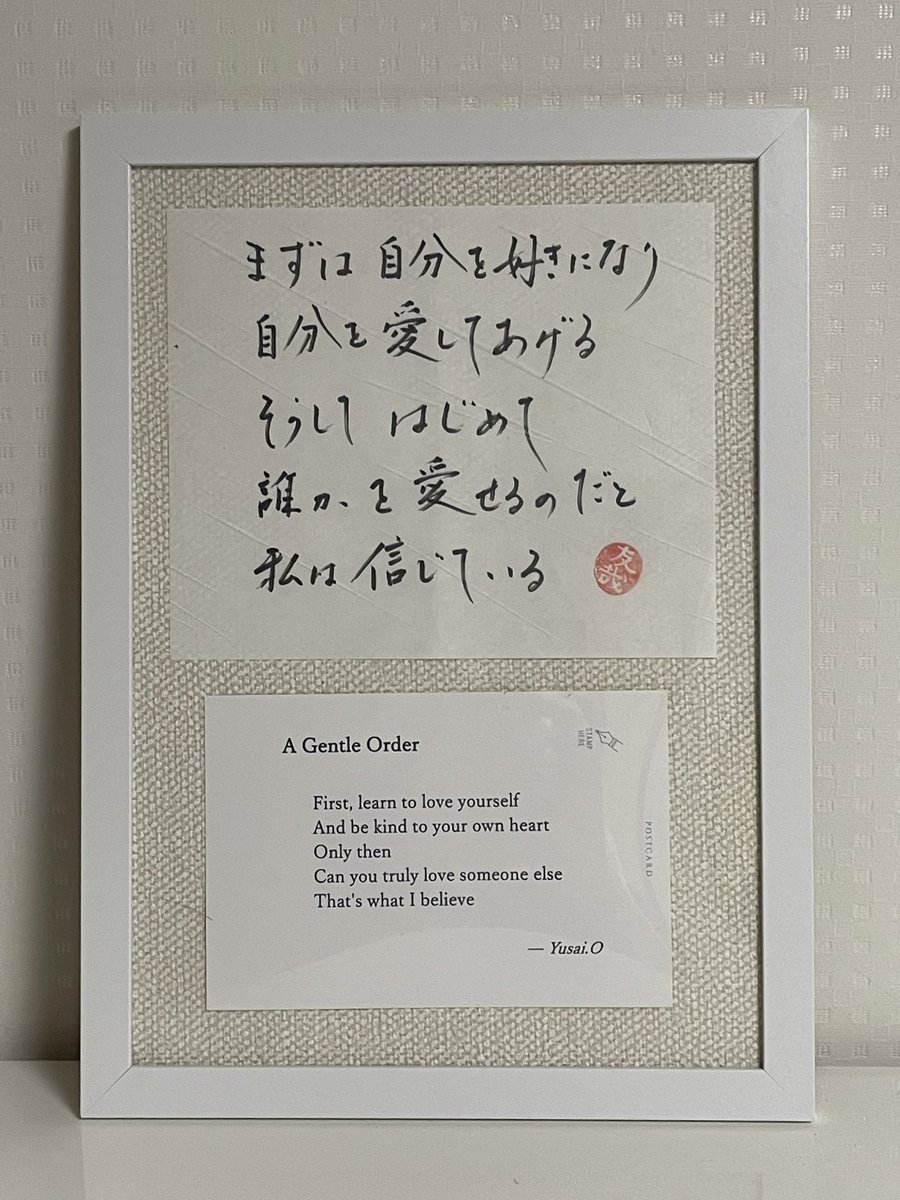 まずは 自分を好きになり
自分を愛してあげる
そうして はじめて
誰かを愛せるのだと
私は信じている
友哉
A Gentle Order
STAMP
HERE
First, learn to love yourself
And be kind to your own heart
Only then
Can you truly love someone else
That's what I believe
POSTCARD
— Yusai.O